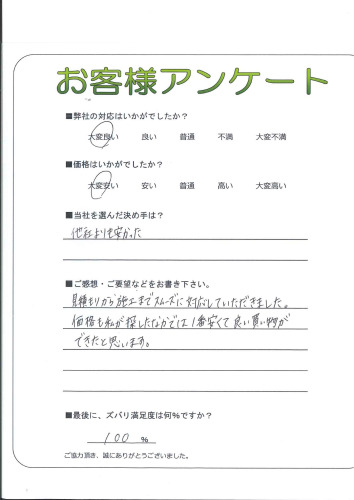 お客様アンケート
■弊社の対応はいかがでしたか？
大変良い 良い 普通 不満 大変不満
■価格はいかがでしたか？
大変安い 安い 普通 高い 大変高い
■当社を選んだ決め手は？
他社よりも安かった
■ご感想・ご要望などをお書き下さい。
見積もりから施工までスムーズに対応していただきました。
価格も私が探したなかでは1番安くて良い買い物が
できたと思います。
■最後に、ズバリ満足度は何％ですか？
100 %
ご協力頂き、誠にありがとうございました。